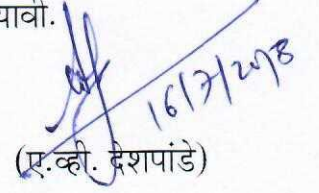 यावी.
16/7/2018
(ए.व्ही. देशपांडे)